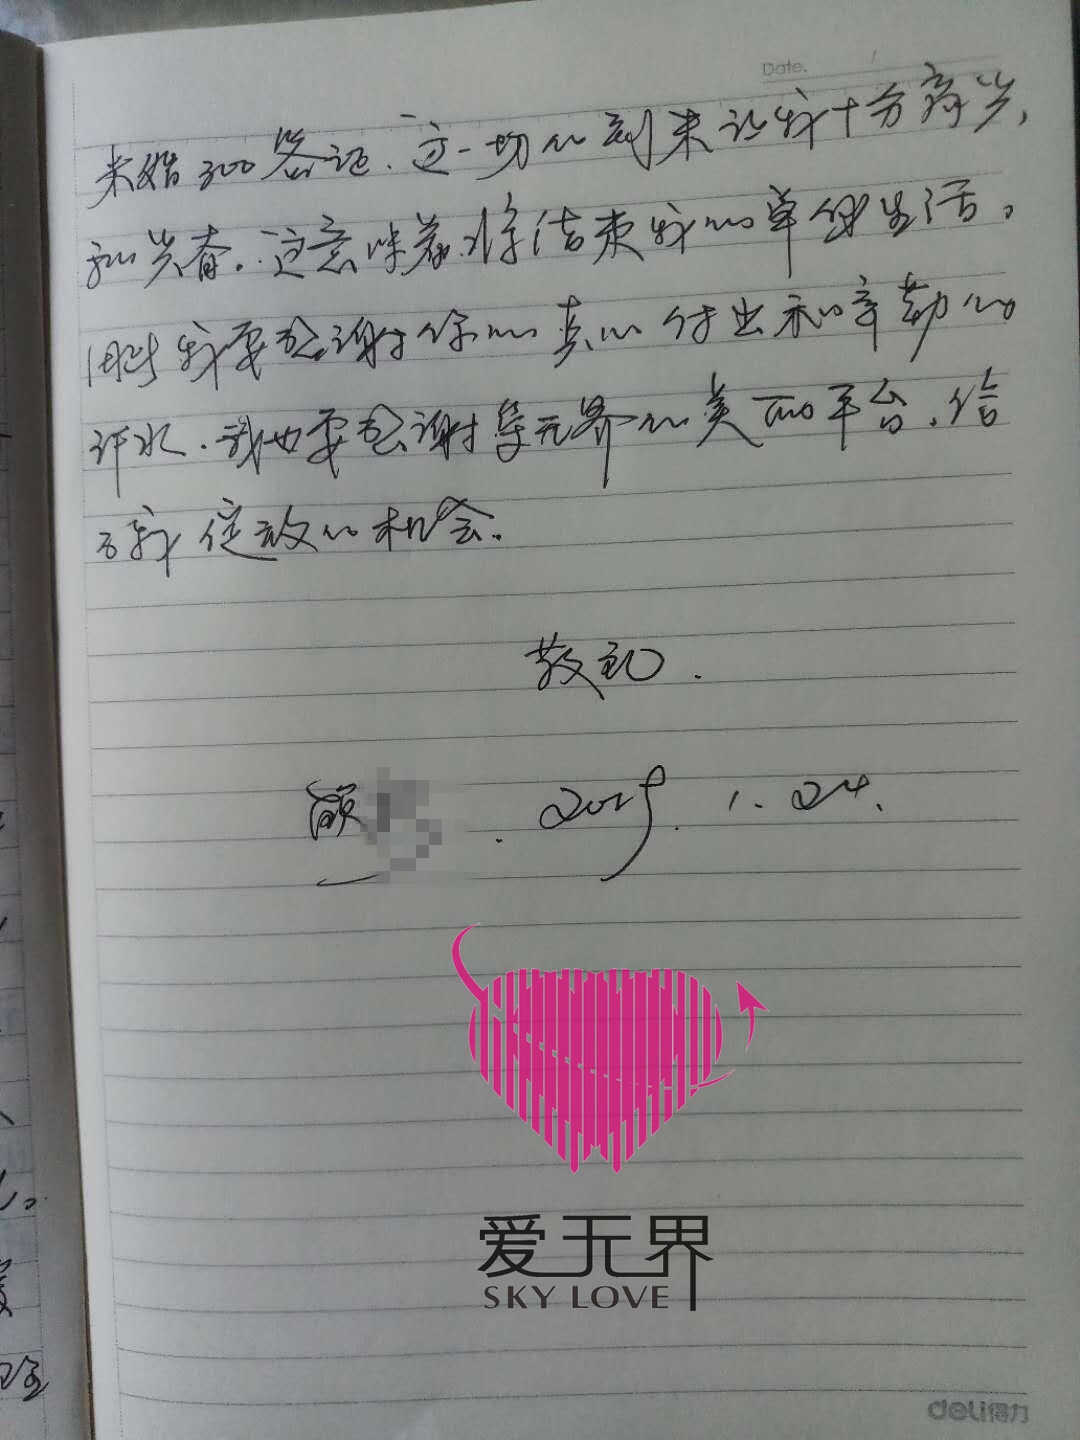 Date.
未婚300签证.这一切的到来让我十分高兴,
和兴奋.这意味着.将结束我的单身生活。
同时我要感谢你的真心付出和辛勤的
汗水.我也要感谢爱无界的美丽平台.给
了我绽放的机会。
敬礼.
颜 . 2019. 1. 24.
爱无界
SKY LOVE
deli得力